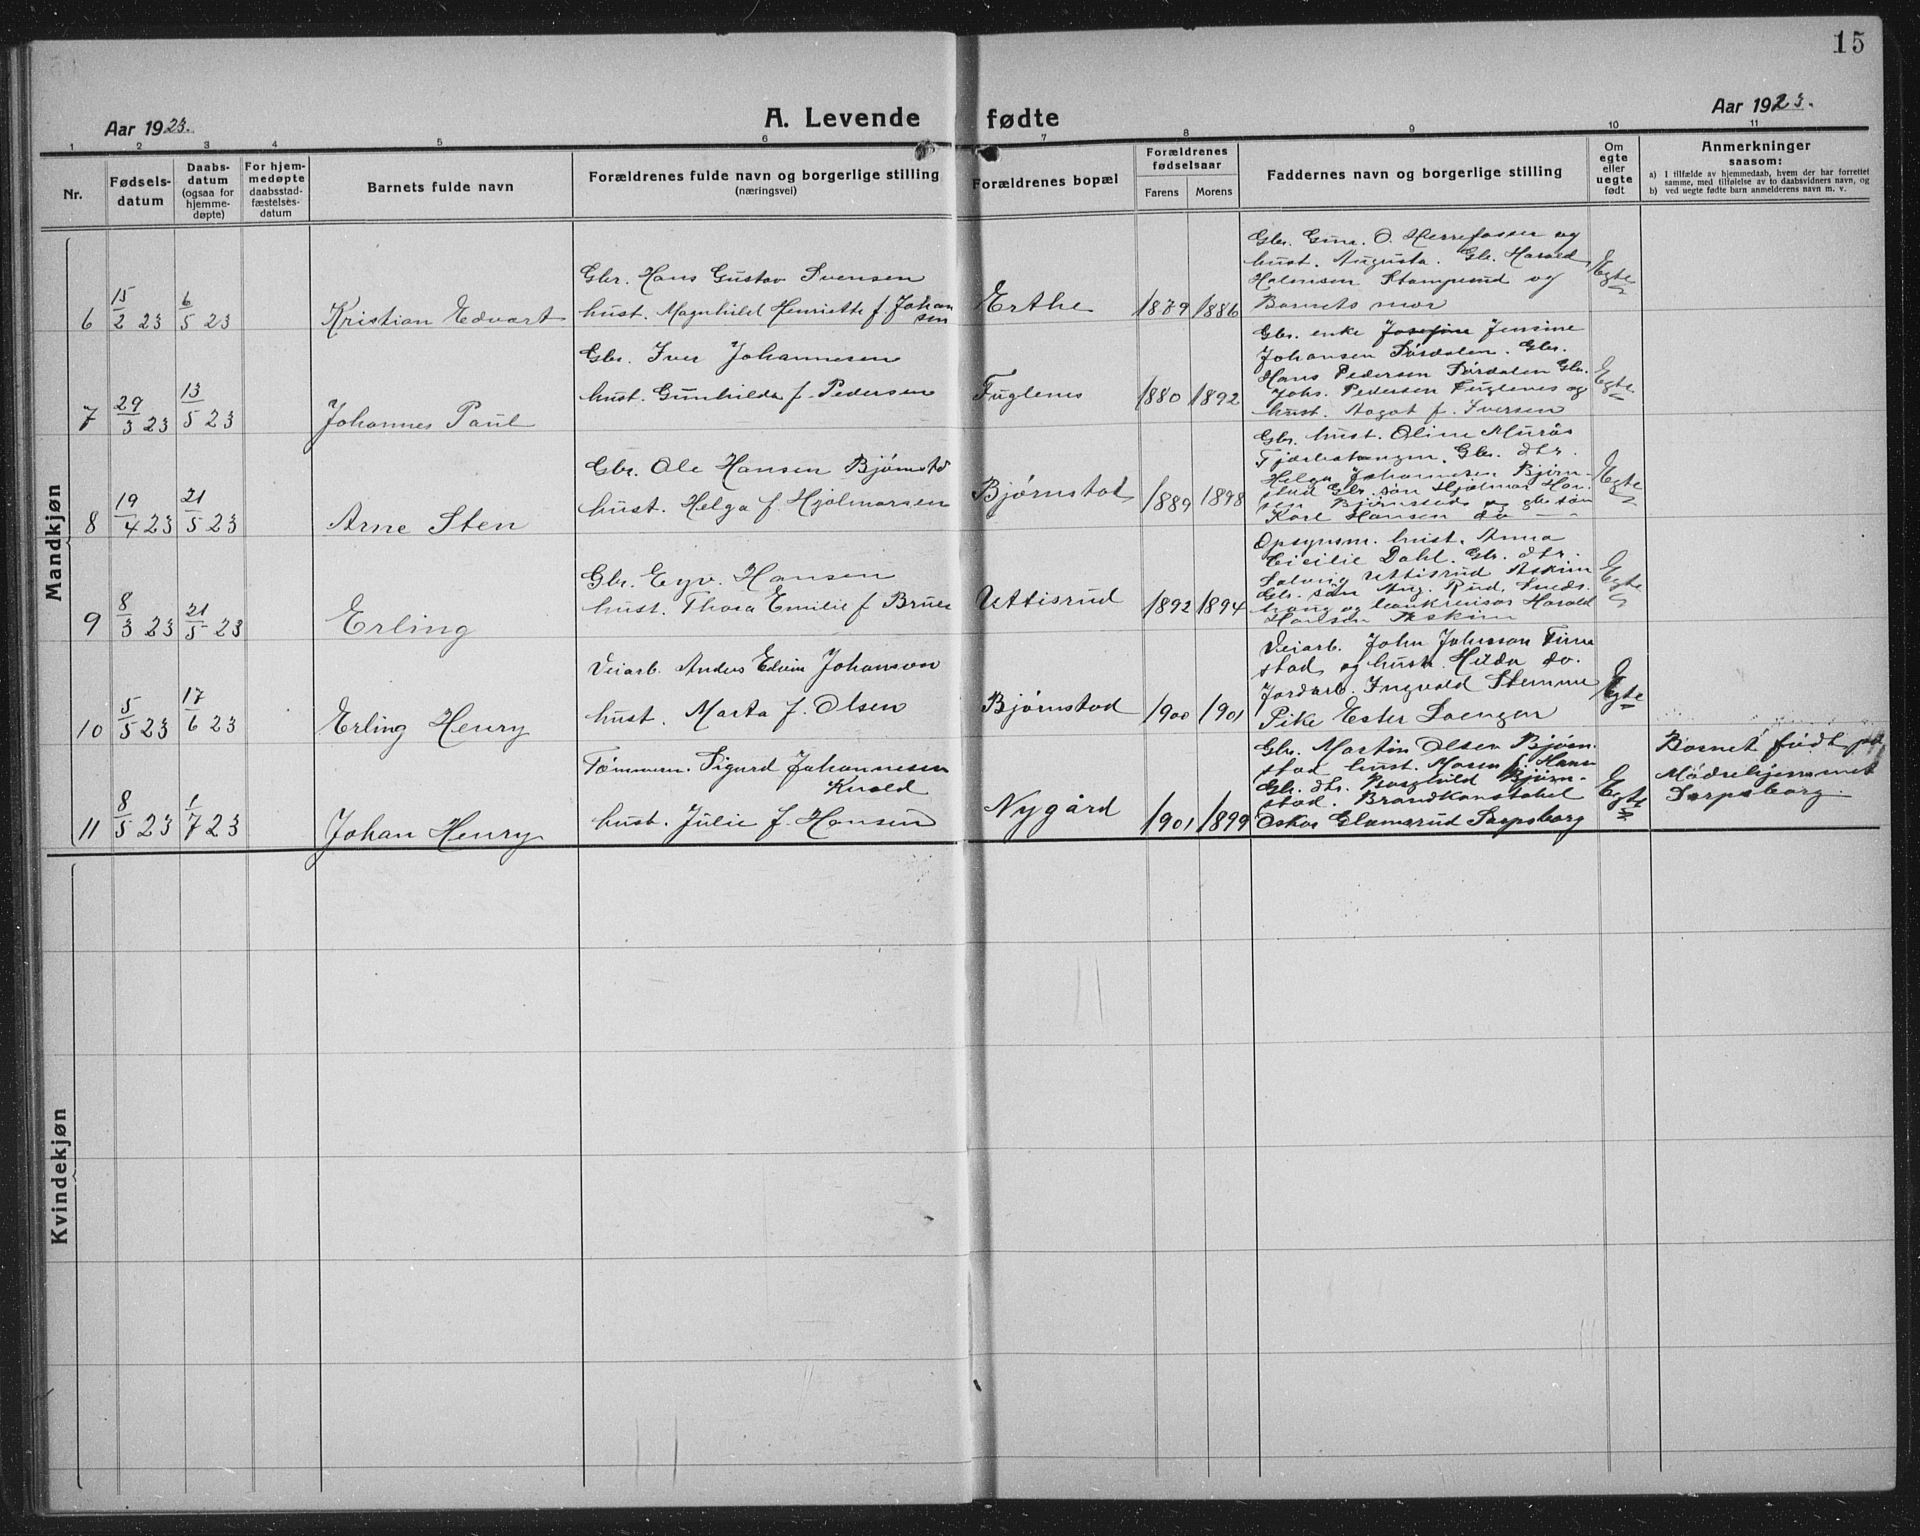 15
Aar 1923.
A. Levende fødte
Aar 1923.
1 2 3 4 5 6 7 8 9 10 11
Nr.
Fødsels-
datum
Daabs-
datum
(ogsaa for
hjemme-
døpte)
For hjem-
medøpte
daabsstad-
fæstelses-
datum
Barnets fulde navn
Forældrenes fulde navn og borgerlige stilling
(næringsvei)
Forældrenes bopæl
Forældrenes
fødselsaar
Farens Morens
Faddernes navn og borgerlige stilling
Om
egte
eller
uegte
født
Anmerkninger
saasom:
a) I tilfælde av hjemmedaab, hvem der har forrettet
samme, med tilføielse av to daabsvidners navn, og
b) ved uegte fødte barn anmelderens navn m. v.
Mandkjøn
6 15/2 23 6/5 23 Kristian Edvart
Gbr. Hans Gustav Svensen
hust. Magnhild Henriette f. Johan
sen
Erthe 1879 1886
Gbr. O. Herrefosser og
hust. Augusta. Gbr. Harald
Holmsen Stamperud og
Barnets mor
Egte
7 29/3 23 13/5 23 Johannes Paul
Gbr. Iver Johannesen
hust. Gunhilda f. Pedersen
Fuglenes 1880 1892
Gbr. enke Josefine Jensine
Johansen Sørdalen. Gbr.
Hans Pedersen Sørdalen Gbr.
Johs. Pedersen Fuglenes og
hust. Aagot f. Iversen
Egte
8 19/4 23 21/5 23 Arne Sten
Gbr. Ole Hansen Bjørnstd
hust. Helga f. Hjalmarsen
Bjørnstad 1889 1898
Gbr. hust. Oline
Gbr. dtr.
Helga Johannesen Bjørn-
stad Gbr. søn Hjalmar Han-
sen Bjørnstad og gbr søn
Karl Hansen do
Egte
9 8/3 23 21/5 23 Erling
Gbr. Eyv. Hansen
hust. Thora Emilie f Bruer
Uttisrud 1892 1894
Opsynsm. hust. Anna
Cicilie Dahl. Gbr. dtr.
Solveig Uttisrud Askim
Gbr. søn Aug. Rud,
og Harald
Askim
Egte
10 5/5 23 17/6 23 Erling Henry
Veiarb. Anders Edvin Johanson
hust. Marta f. Olsen
Bjørnstad 1900 1901
Veiarb. John Johnsson
stad og hustr. Hilda do.
Jordarb. Ingvald Stemme
Pike Ester Soengen
Egte
11 8/5 23 1/7 23 Johan Henry
Tømmerm. Sigurd Johannesen
Kvold
hust. Julie f. Hansen
Nygård 1901 1899
Gbr. Martin Olsen Bjørn-
stad hust. Maren f. Hans
Gbr. dtr. Borghild Bjørn-
stad. Brandkonstabel
Oskar Glomsrud Sarpsborg
Egte
Barnet født på
Mødrehjemmet
Sarpsborg.
Kvindekjøn